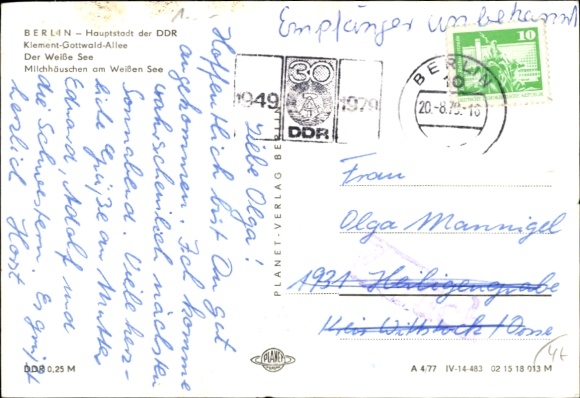 BERLIN – Hauptstadt der DDR
Klement-Gottwald-Allee
Der Weiße See
Milchhäuschen am Weißen See
Empfänger unbekannt
1949 30 1979
DDR
BERLIN
10
20.-8.79.-16
10
DDR
Liebe Olga!
Hoffentlich bist Du gut
angekommen. Ich komme
wahrscheinlich nächsten
Sonnabend. Viele herz-
liche Grüße an Mutter
Eduard, Adolf und
die Schwestern. Es grüßt
herzlich Horst
PLANET-VERLAG BERLIN
Frau
Olga Mannigel
1931 Heiligengrabe
Kreis Wittstock/Dosse
DDR 0,25 M
PLANET
A 4.77 IV-14-483 02 15 18 013 M